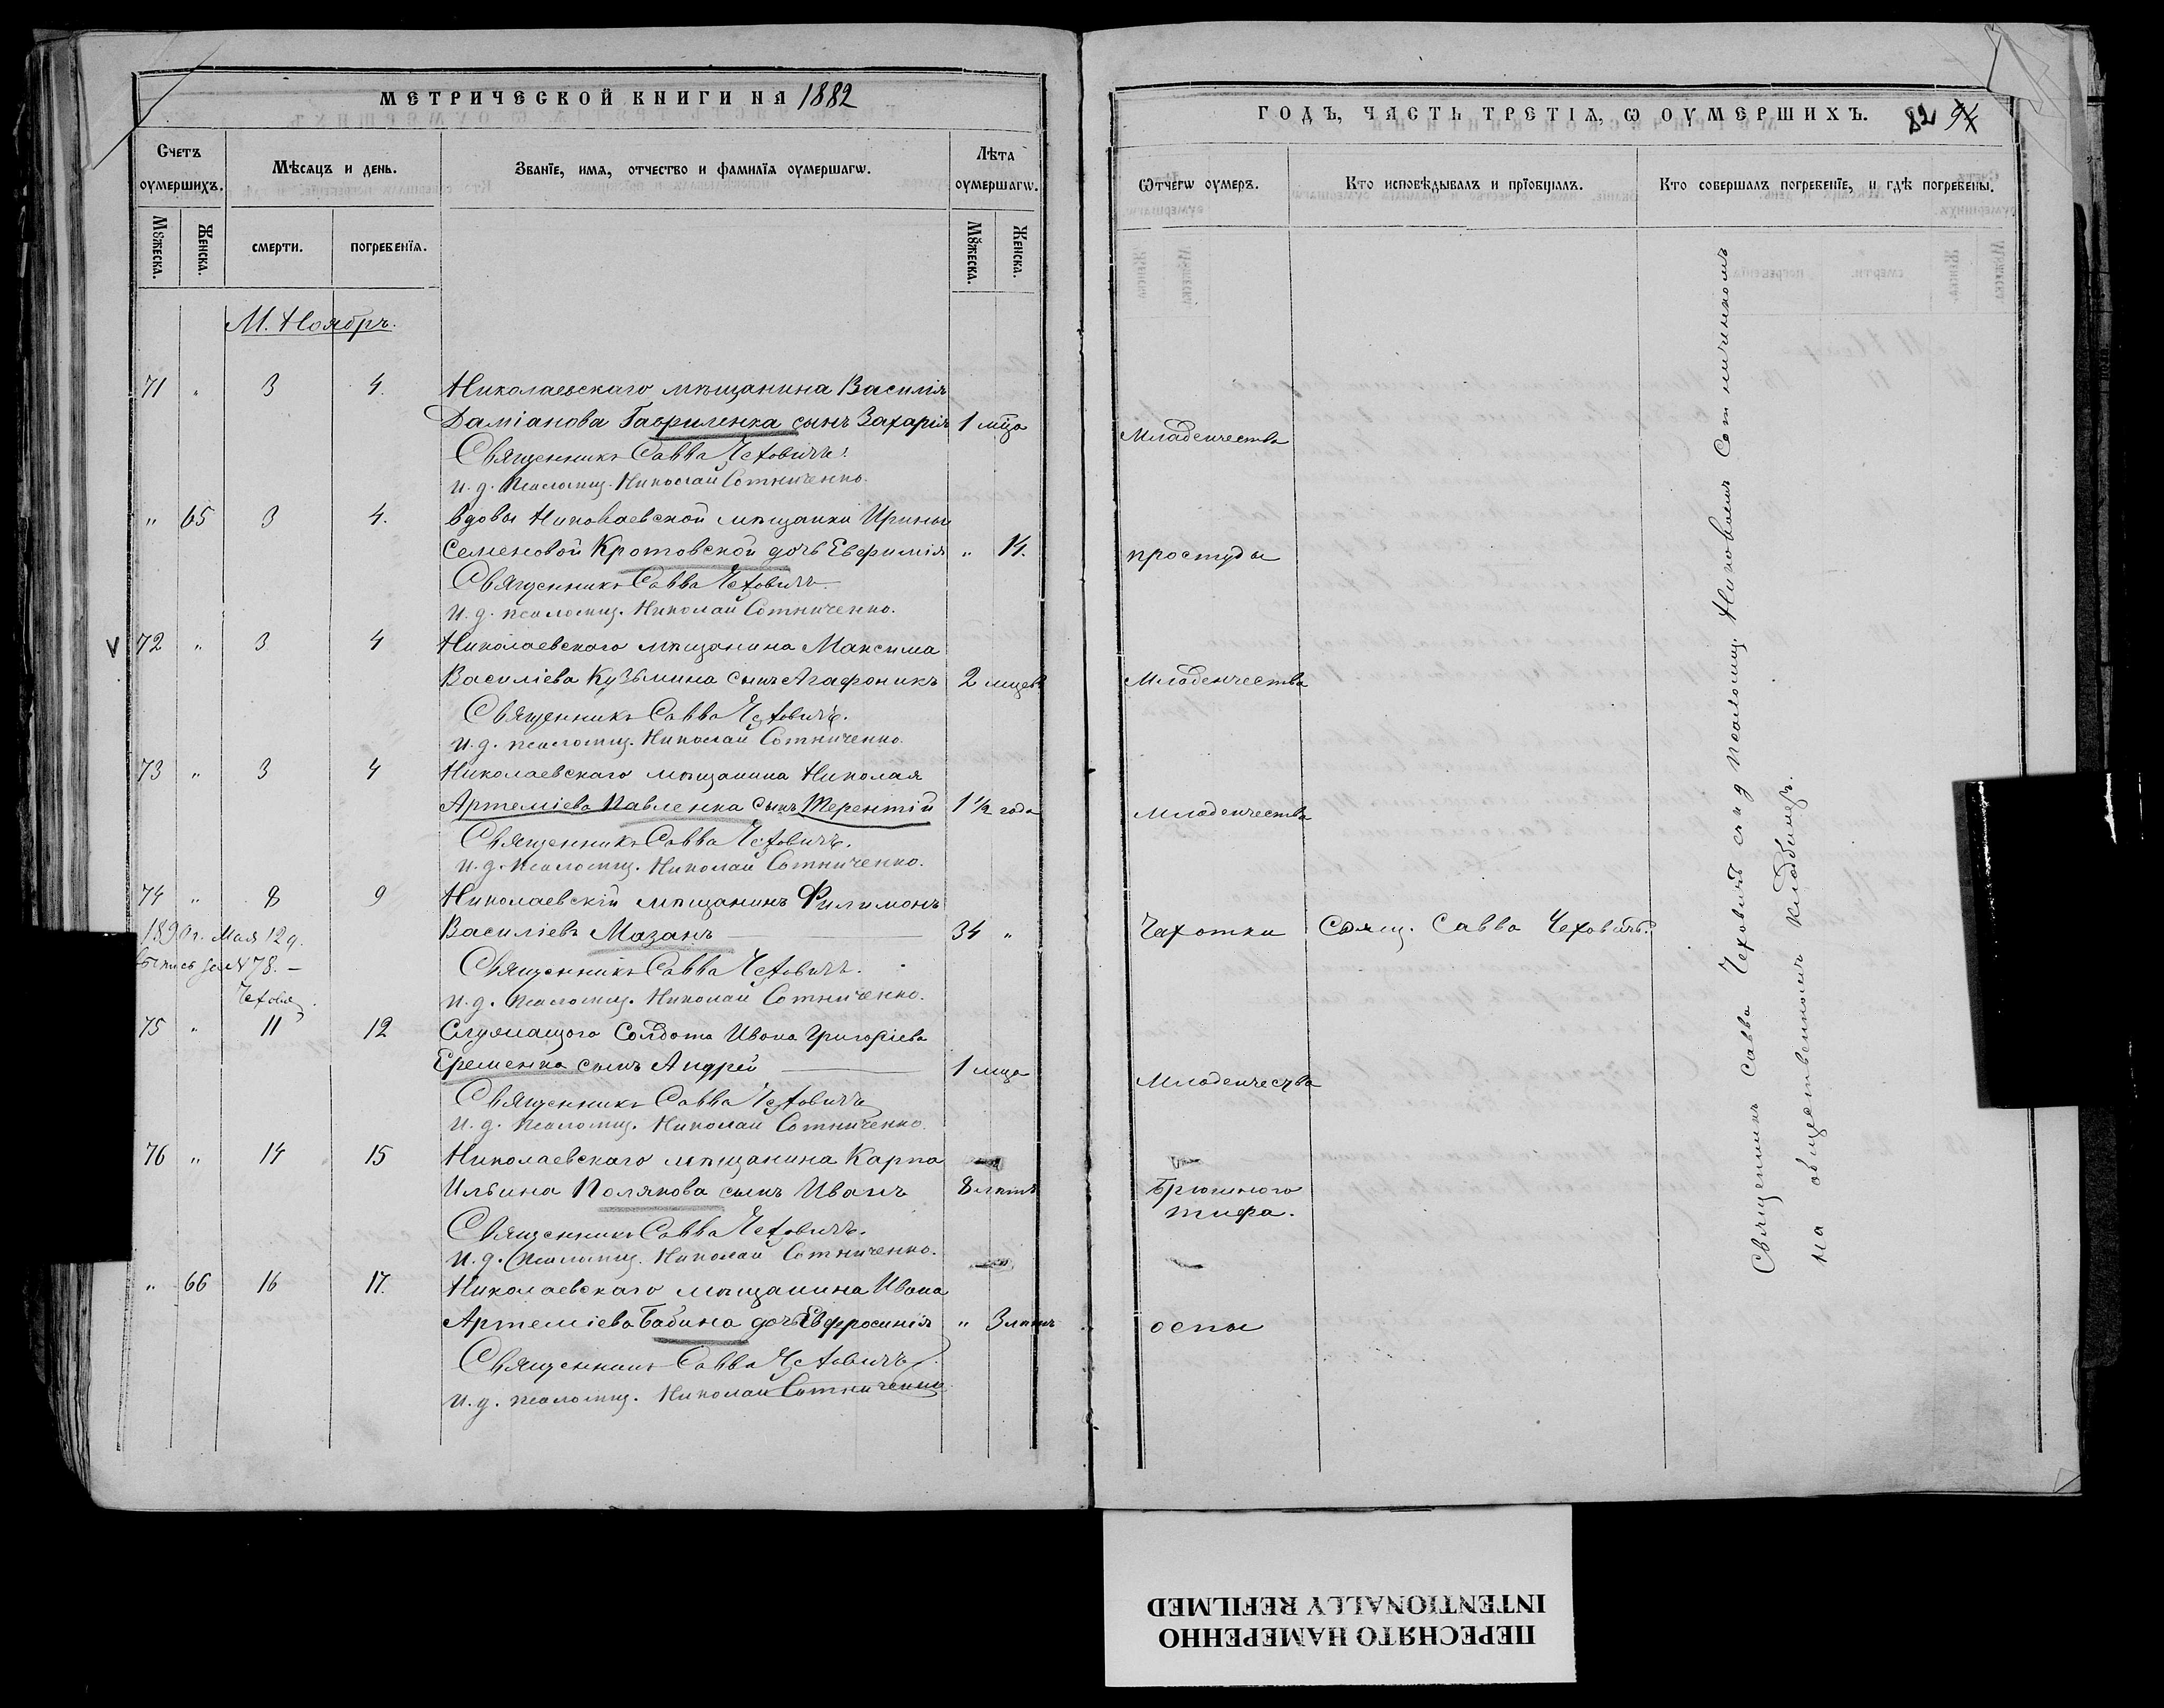 МЕТРИЧЕСКОЙ КНИГИ НА 1882
Счетъ оумершихъ.
Мѣсяцъ и день.
Званїе, имя, отчество и фамилїя оумершагѡ.
Лѣта оумершагѡ.
Мꙋжеска.
Женска.
смерти.
погребенїя.
Мꙋжеска.
Женска.
М. Ноябрь.
71 " 3 4. Николаевскаго мѣщанина Василія
Даміанова Гавриленка сынъ Захарія 1 мца
Священникъ Савва Чеховичъ.
И. д. псаломщ. Николай Сотниченко.
" 65 3 4. вдовы Николаевской мѣщанки Ирины
Семеновой Кротовской дочь Евфимія " 14.
Священникъ Савва Чеховичъ
И. д. псаломщ. Николай Сотниченко.
V 72 " 3 4 Николаевскаго мѣщанина Максима
Василіева Кузьмина сынъ Агафоникъ 2 мцевъ
Священникъ Савва Чеховичъ.
И. д. псаломщ. Николай Сотниченко.
73 " 3 4 Николаевскаго мѣщанина Николая
Артеміева Павленка сынъ Терентій 1 1/2 года
Священникъ Савва Чеховичъ.
И. д. псаломщ. Николай Сотниченко.
74 " 8 9 Николаевскій мѣщанинъ Филимонъ
Василіевъ Мазанъ 34 "
1890 г. Мая 12 д.
78. –
Священникъ Савва Чеховичъ.
И. д. псаломщ. Николай Сотниченко.
75 " 11 12 Служащого Солдата Ивана Григоріева
Еременка сынъ Андрей 1 мца
Священникъ Савва Чеховичъ
И. д. псаломщ. Николай Сотниченко.
76 " 14 15 Николаевскаго мѣщанина Карпа
Ильина Полякова сынъ Иванъ 8 лѣтъ
Священникъ Савва Чеховичъ.
И. д. псаломщ. Николай Сотниченко.
" 66 16 17. Николаевскаго мѣщанина Ивана
Артеміева Бабина дочь Евфросинія " 3 лѣтъ
Священникъ Савва Чеховичъ
И. д. псаломщ. Николай Сотниченко
ГОДЪ, ЧАСТЬ ТРЕТІѦ, Ѡ ОУМЕРШИХЪ. 82 94
Ѿчегѡ оумеръ.
Кто исповѣдывалъ и прїобщалъ.
Кто совершалъ погребенїе, и гдѣ погребены.
Младенчества
простуды
Младенчества
Младенчества
Чахотки Свящ. Савва Чеховичъ.
Младенчества
Брюшного
тифа.
оспы
Священникъ Савва Чеховичъ съ и д псаломщ. Николаемъ Сотниченкомъ
на общественномъ кладбищѣ.
ПЕРЕСНЯТО НАМЕРЕННО
INTENTIONALLY REFILMED